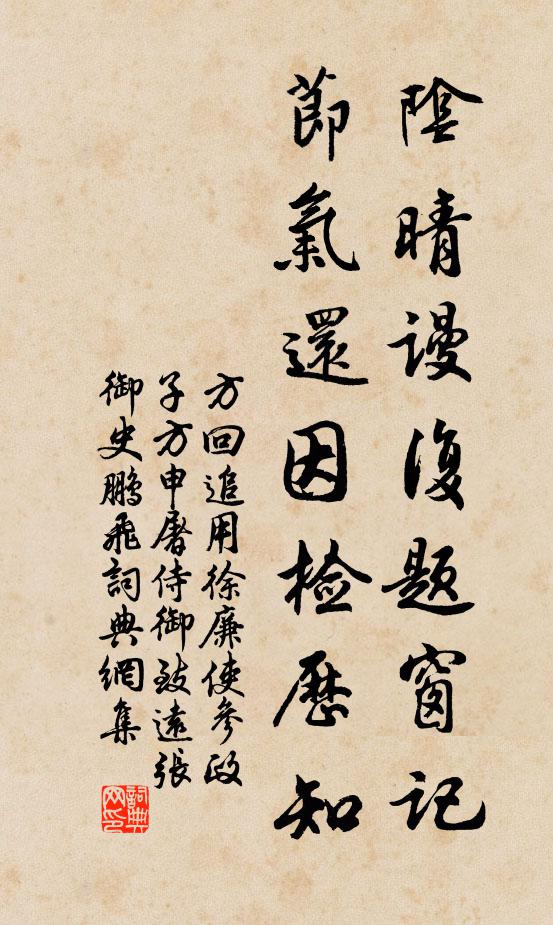 陰晴謾復題窗記
節氣還因檢歷知
方回追用徐廉使參政
子方申屠侍御致遠張
御史鵬飛詞典網集
詞典
网印